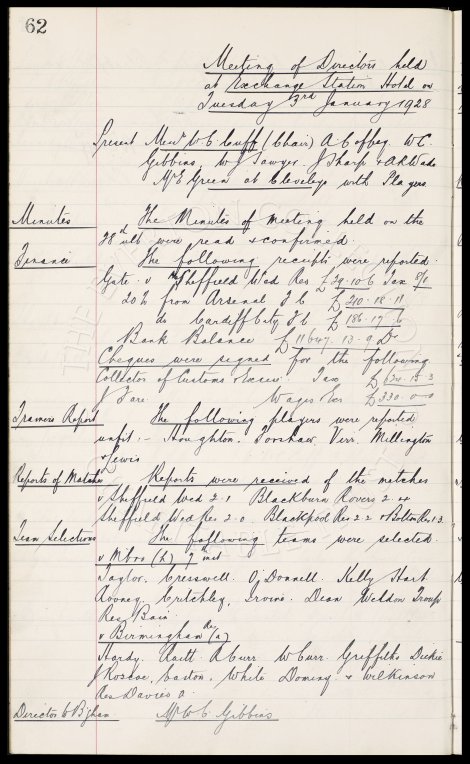 62
Meeting of Directors held
at Exchange Station Hotel on
Tuesday 3rd January 1928
Present Messrs W C Cuff (Chair) A Coffey. W.C.
Gibbins W J Sawyer. J Sharp & A R Wade
Mr E Green at Cleveleys with Players
Minutes The Minutes of meeting held on the
28th ult were read & confirmed.
Finance The following receipts were reported.
Gate. v Sheffield Wed Res £29.10.6 Tax 8/1
20% from Arsenal F C £210.18.11
do Cardiff City F C £186.17.6
Bank Balance £11647.13.9 Dr
Cheques were signed for the following
Collector of Customs & Excise. Tax £
J Fare. Wages &c £330.0.0
Trainers Report The following players were reported
unfit :- Houghton, Forshaw Virr. Millington
& Lewis
Reports of Matches Reports were received of the matches
v Sheffield Wed 2.1 Blackburn Rovers 2.4
Sheffield Wed Res 2.0 Blackpool Res 2.2 & Bolton Res 1.3.
Team Selections The following teams were selected.
v Mbro (h) 7th inst
Taylor. Cresswell. O'Donnell. Kelly Hart
Rooney. Critchley. Irvine. Dean Weldon Troup
Res Bain
v Birmingham Res (a)
Hardy. Raitt. A Curr. W Curr. Griffiths Dickie
J Roscoe. Easton. White Dominy & Wilkinson
Res Davies a
Director to B'ghan Mr W C Gibbins